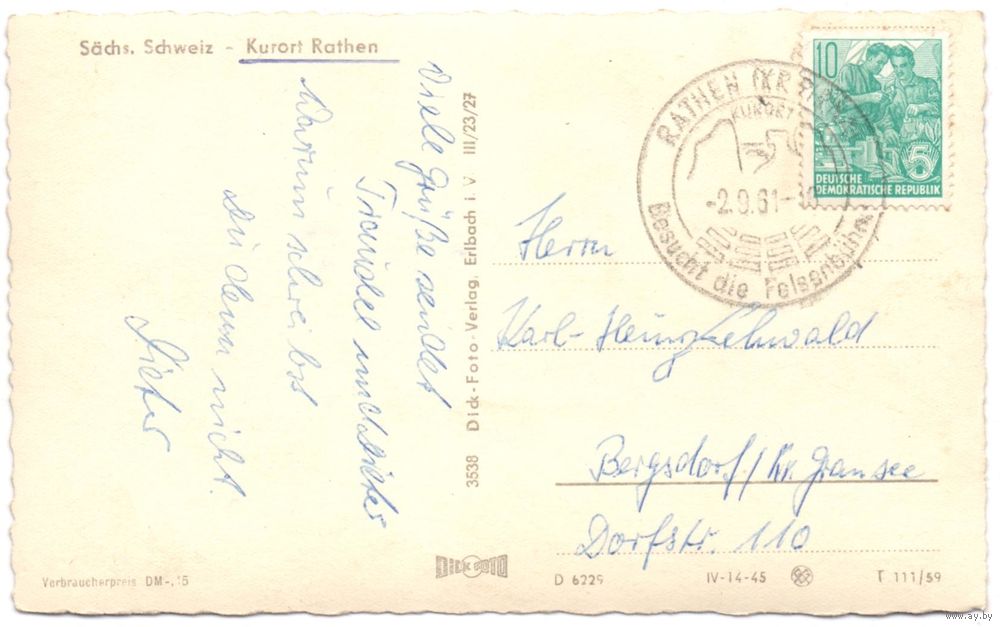 Sächs. Schweiz - Kurort Rathen
Viele Grüße sendet
Traudel und Dieter
Warum schreibst
Du denn nicht.
Dieter
3538 Dick-Foto-Verlag, Erlbach i. V. III/23/27
10
DEUTSCHE
DEMOKRATISCHE REPUBLIK
5
RATHEN (KR PIRNA)
KURORT
-2.9.61-
Besucht die Felsenbühne
Herrn
Karl-Heinz Ehwald
Bergsdorf/Kr. Gransee
Dorfstr. 110
Verbraucherpreis DM-.15
DICK FOTO
D 6229
IV-14-45
T 111/59
www.ay.by